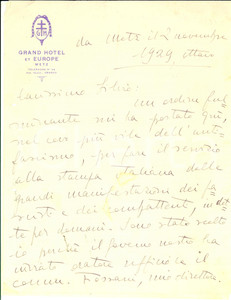 GRAND HOTEL
ET EUROPE
METZ
da Metz il 2 novembre
1929 ottavo
Carissimo Silvio:
un ordine ful
minante mi ha portato qui,
nel covo più vile dell'anti
fascismo, per fare il servizio
alla stampa italiana delle
grandi manifestazioni dei fa
scisti e dei combattenti, indet
te per domani. Sono stato scelto
io perché il governo nostro ha